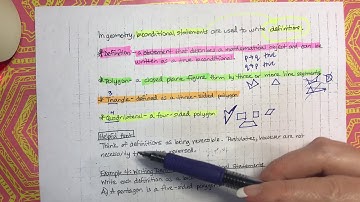 In geometry, biconditional statements are used to write definitions.
*Definition - a statement that describes a mathematical object and can be
written as a true biconditional. p→q true
q→p true
*Polygon - a closed plane figure form by three or more line segments
3
*Triangle - defined as a three-sided polygon
4
*Quadrilateral - a four-sided polygon
Helpful Hint:
Think of definitions as being reversible. Postulates, however are not
necessarily true when reversed.
Example 4: Writing Definitions as Biconditional Statements
Write each definition as a
A) A pentagon is a five-sided polygon